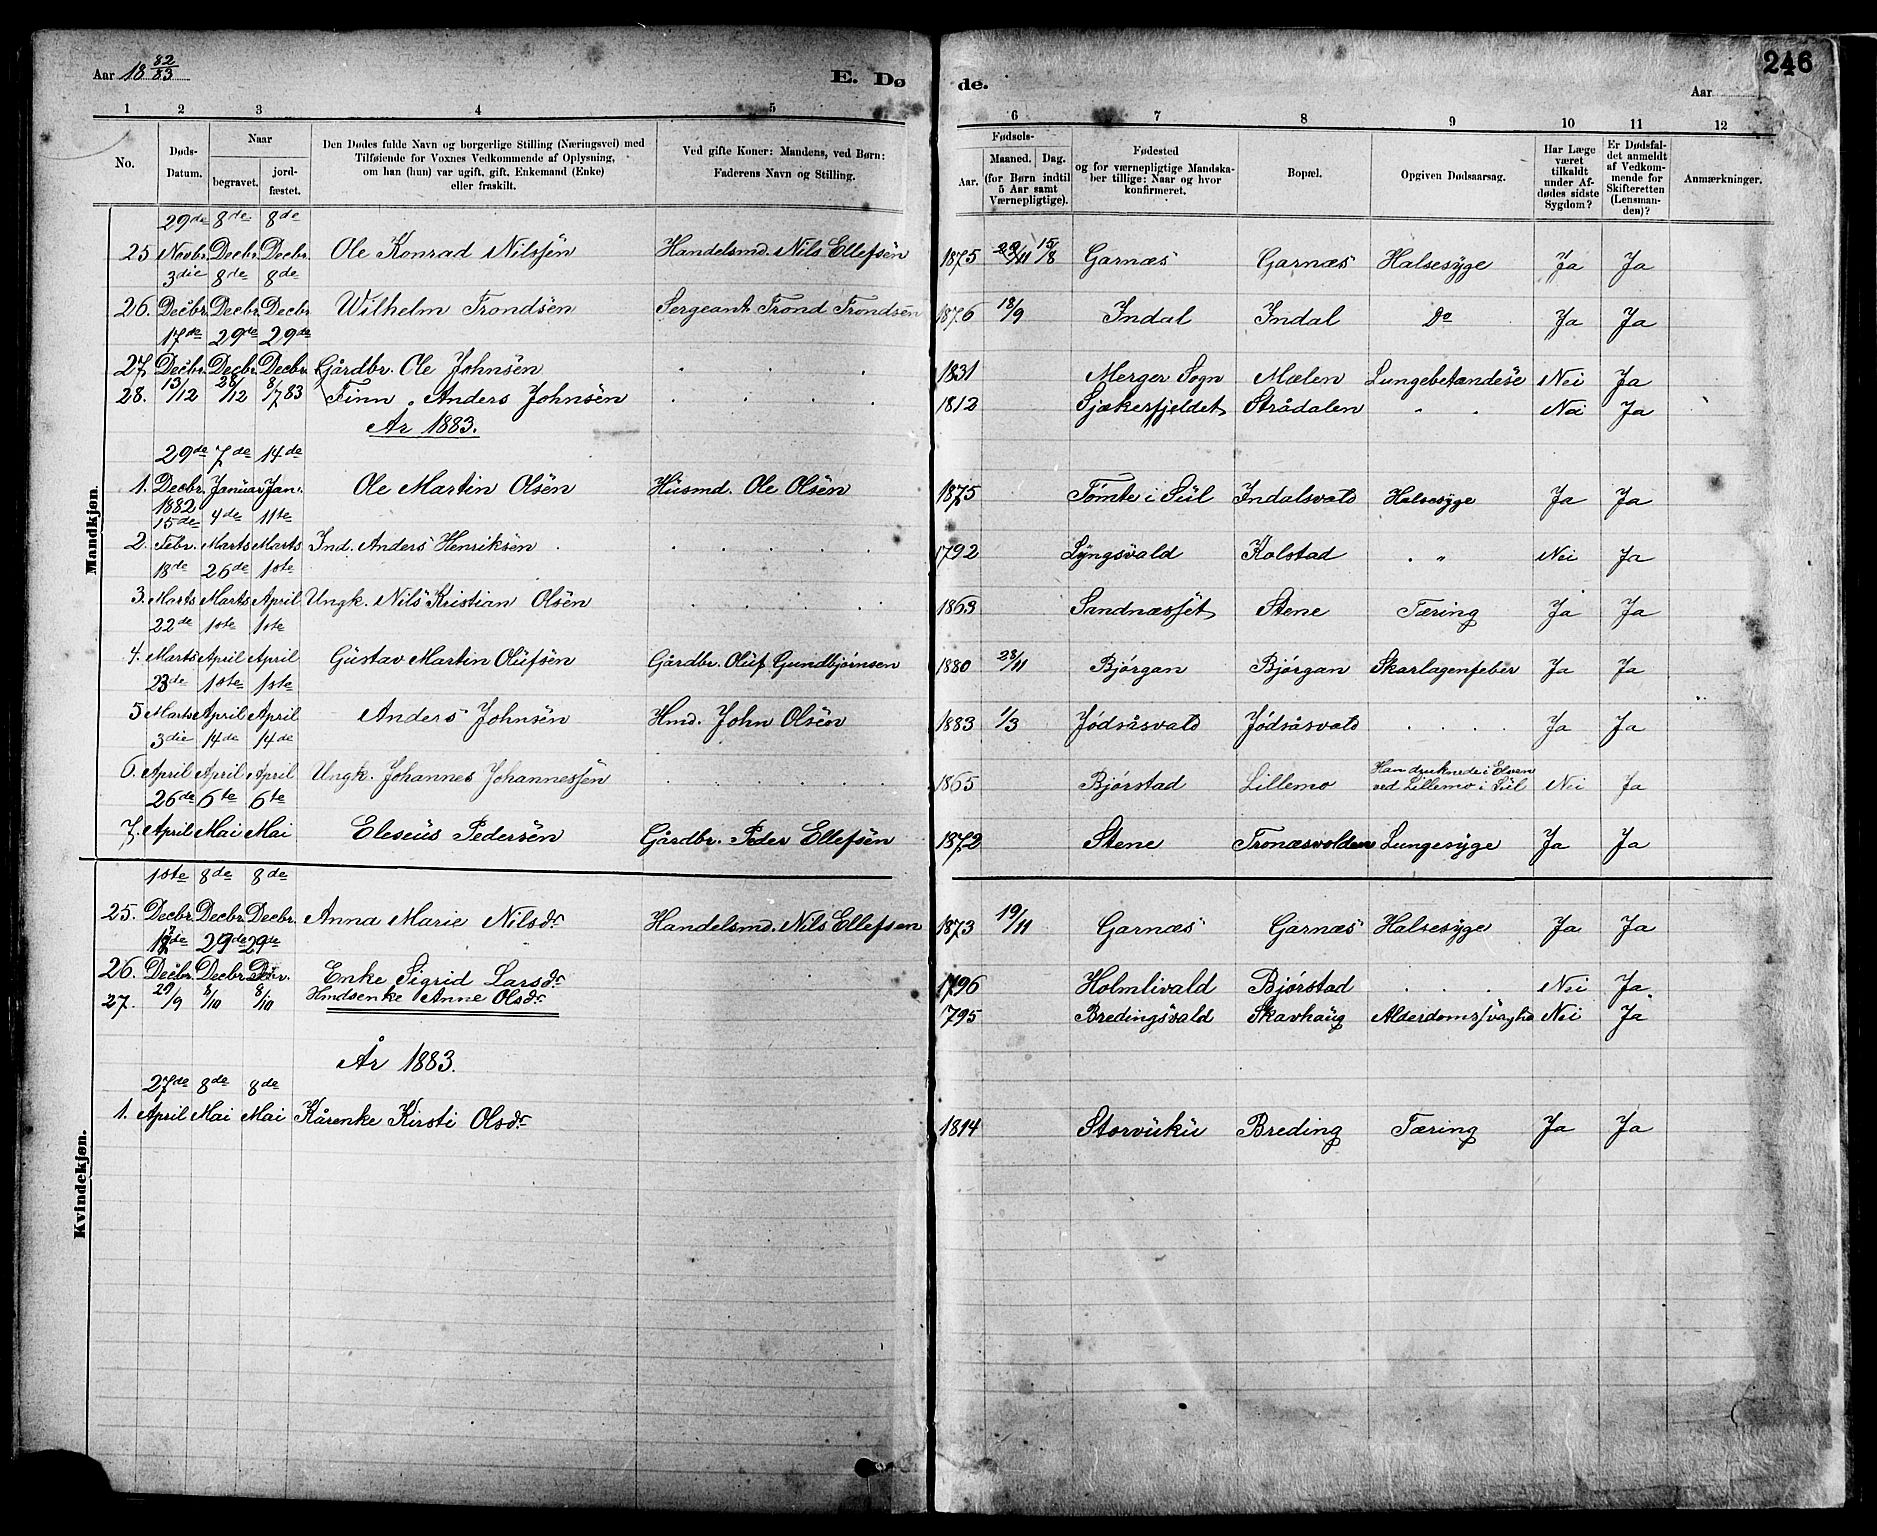 Aar 18 82/83
E. Dø
de.
246
Aar
1 2 3 4 5 6 7 8 9 10 11 12
No.
Døds-Datum.
Naar
begravet.
jord-fæstet.
Den Dødes fulde Navn og borgerlige Stilling (Næringsvei) med
Tilføiende for Voxnes Vedkommende af Oplysning,
om han (hun) var ugift, gift, Enkemand (Enke)
eller fraskilt.
Ved gifte Koner: Mandens, ved Børn:
Faderens Navn og Stilling.
Fødsels-
Aar.
Maaned. Dag.
(for Børn indtil
5 Aar samt
Værnepligtige).
Fødested
og for værnepligtige Mandska-
ber tillige: Naar og hvor
konfirmeret.
Bopæl.
Opgiven Dødsaarsag.
Har Læge
været
tilkaldt
under Af-
dødes sidste
Sygdom?
Er Dødsfal-
det anmeldt
af Vedkom-
mende for
Skifteretten
(Lensman-
den)?
Anmærkninger.
Mandkjøn.
29de 8de 8de
25 Novbr. Decbr. Decbr. Ole Konrad Nilssen Handelsmd. Nils Ellefsen 1875 15/8 Garnæs Garnæs Halsesyge Ja Ja
3die 8de 8de
26. Decbr. Decbr. Decbr. Wilhelm Trondsen Sergeant Trond Trondsen 1876 18/9 Indal Indal Do Ja Ja
17de 29de 29de
27 Decbr. Decbr. Decbr. Gårdbr. Ole Johnsen 1831 Merger Sogn Mælen Lungebetændese Nei Ja
28. 13/12 28/12 8/7 83 Finn. Anders Johnsen 1812 Sjækerfjeldet Strådalen " " Nei Ja
År 1883.
29de 7de 14de
1. Decbr. Januar Jan. Ole Martin Olsen Husmd. Ole Olsen 1875 Tømte i Sul Indalsvald Halsesyge Ja Ja
1882
15de 4de 11te
2. Febr. Marts Marts Ind. Anders Henriksen 1792 Lyngsvald Kolstad " Nei Ja
18de 26de 1ste
3. Marts Marts April Ungk. Nils Kristian Olsen 1863 Sandnæsset Stene Tæring Ja Ja
22de 1ste 1ste
4. Marts April April Gustav Martin Olufsen Gårdbr. Oluf Gundbjørnsen 1880 23/11 Bjørgan Bjørgan Skarlagenfeber Ja Ja
23de 1ste 1ste
5 Marts April April Anders Johnsen Hmd. John Olsen 1883 1/3 Jødsåsvald Jødsåsvald Ja Ja
3die 14de 14de
6. April April April Ungk. Johannes Johannessen 1865 Bjørstad Lillemo Han druknede i Elven ved Lillemo i Sul Nei Ja
26de 6te 6te
7. April Mai Mai Eleseus Pedersen Gårdbr. Peder Ellefsen 1872 Stene Tronæsvolden Lungesyge Ja Ja
Kvindekjøn.
1ste 8de 8de
25. Decbr. Decbr. Decbr. Anna Marie Nilsdr. Handelsmd. Nils Ellefsen 1873 19/11 Garnæs Garnæs Halsesyge Ja Ja
29de 29de
26. Decbr. Decbr. Enke Sigrid Larsdr. 1796 Holmlivald Bjørstad Nei Ja
27. 29/9 8/10 8/10 Hmdsenke Anne Olsdr. 1795 Bredingsvald Skavhaug Nei Ja
År 1883.
27de 8de 8de
1. April Mai Mai Kårenke Kirsti Olsdr. 1814 Storvuku Breding Tæring Ja Ja